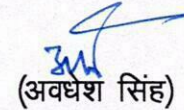 (अवधेश सिंह)